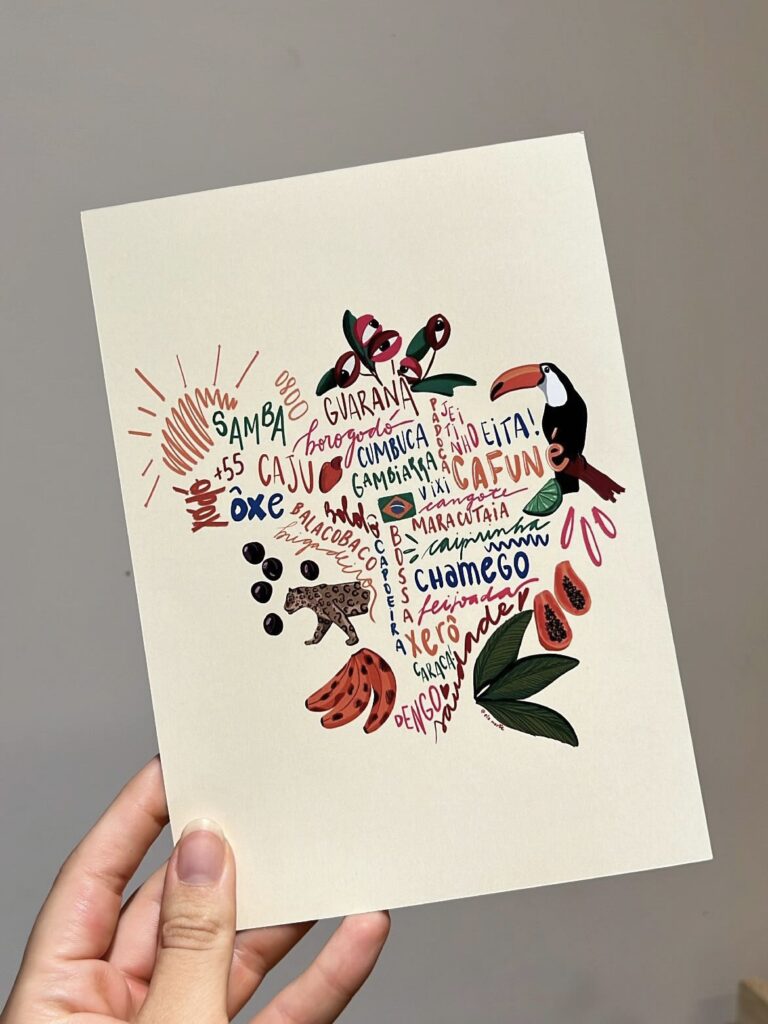 GUARANÁ
0800
SAMBA
borogodó
PAPOCA
JEITINHO
EITA!
CUMBUCA
+55
CAJU
GAMBIARRA
CAFUNÉ
VIXI
XODÓ
ÔXE
cangote
BALACOBACO
MARACUTAIA
brigadeiro
CAPOEIRA
BOSSA
caipirinha
CHAMEGO
feijoada
XERÔ
saudade
CARACA!
DENGO